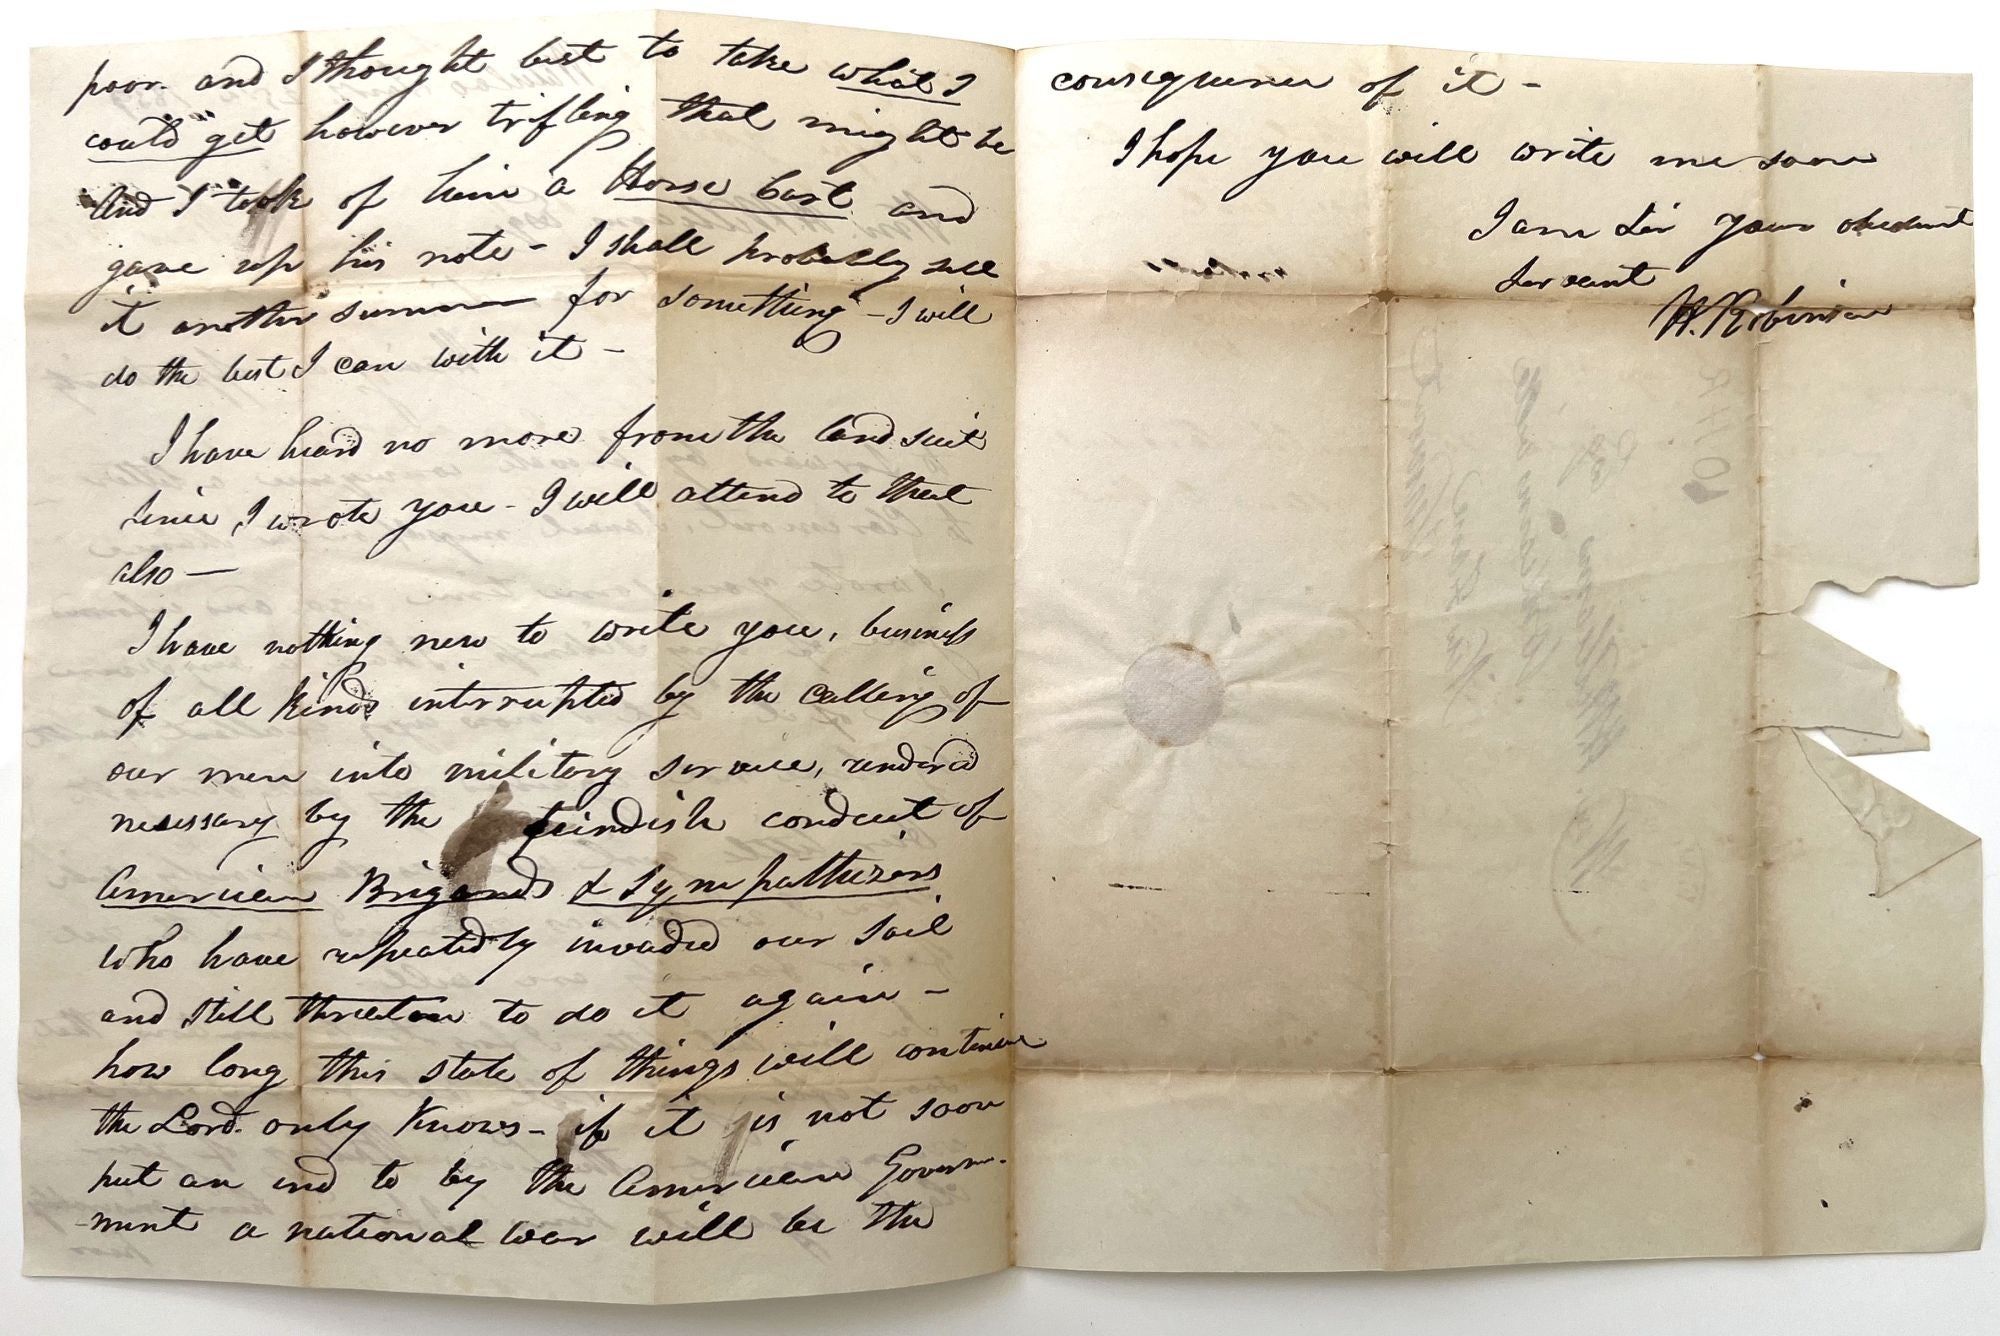 poor. and I thought best to take what I
could get however trifling that might be
And I took of him a Horse Cart and
gave up his note - I shall probably sell
it another summer for something - I will
do the best I can with it -
I have heard no more from the land suit
since I wrote you - I will attend to that
also -
I have nothing new to write you, business
of all kinds interrupted by the calling of
our men into military service, rendered
necessary by the feindish conduct of
American Brigands & Sympathizers
who have repeatedly invaded our soil
and still threaten to do it again -
how long this state of things will continue
the Lord only knows - if it is not soon
put an end to by the American Govern-
-ment a national war will be the
consequence of it -
I hope you will write me soon
I am Sir your obedient
Servant
H. Robinson